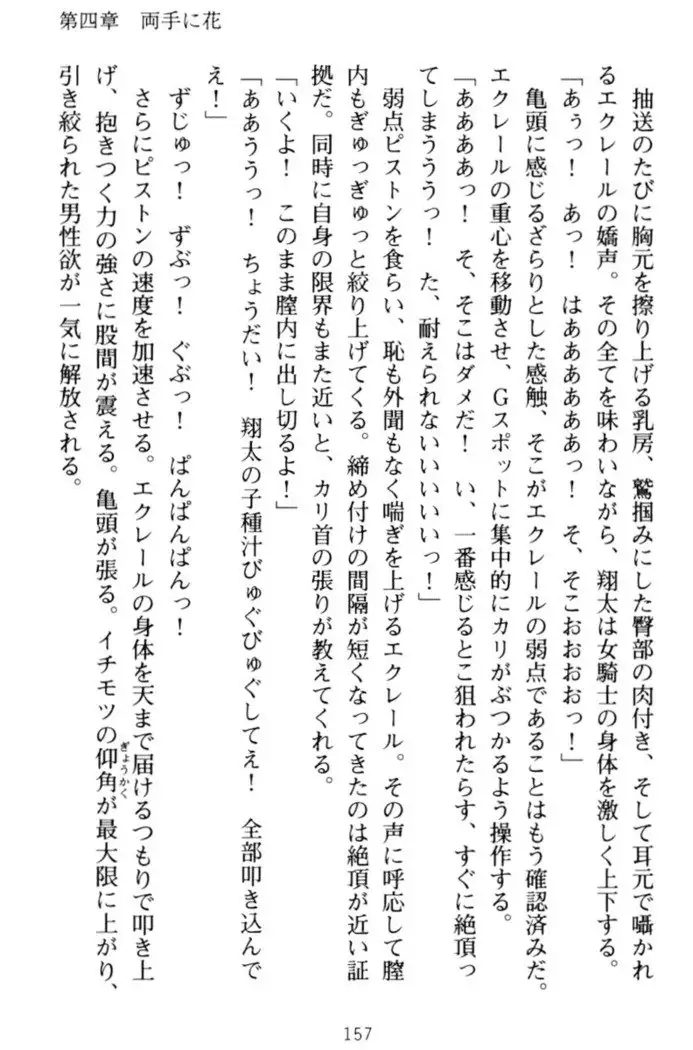 第四章　両手に花
　抽送のたびに胸元を擦り上げる乳房、鷲掴みにした臀部の肉付き、そして耳元で囁かれ
るエクレールの嬌声。その全てを味わいながら、翔太は女騎士の身体を激しく上下する。
「あぅっ！　あっ！　はああああああっ！　そ、そこおおおおっ！」
　亀頭に感じるざらりとした感触、そこがエクレールの弱点であることはもう確認済みだ。
エクレールの重心を移動させ、Ｇスポットに集中的にカリがぶつかるよう操作する。
「ああああっ！　そ、そこはダメだ！　い、一番感じるとこ狙われたらす、すぐに絶頂っ
てしまううぅっ！　た、耐えられないいいいいっ！」
　弱点ピストンを食らい、恥も外聞もなく喘ぎを上げるエクレール。その声に呼応して膣
内もぎゅっぎゅっと絞り上げてくる。締め付けの間隔が短くなってきたのは絶頂が近い証
拠だ。同時に自身の限界もまた近いと、カリ首の張りが教えてくれる。
「いくよ！　このまま膣内に出し切るよ！」
「ああううっ！　ちょうだい！　翔太の子種汁びゅぐびゅぐしてえ！　全部叩き込んで
え！」
　ずじゅっ！　ずぶっ！　ぐぶっ！　ぱんぱんぱんっ！
　さらにピストンの速度を加速させる。エクレールの身体を天まで届けるつもりで叩き上
げ、抱きつく力の強さに股間が震える。亀頭が張る。イチモツの仰角が最大限に上がり、
ぎょうかく
引き絞られた男性欲が一気に解放される。
157